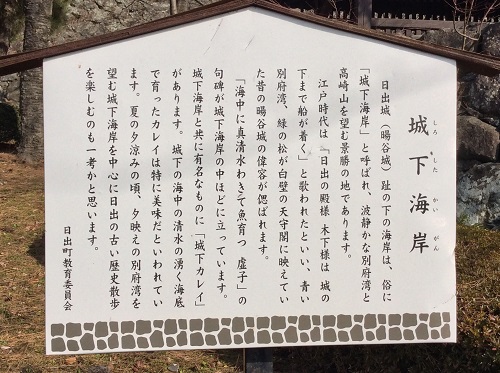 城下海岸
しろ した かい がん
日出城（暘谷城）趾の下の海岸は、俗に
「城下海岸」と呼ばれ、波静かな別府湾と
高崎山を望む景勝の地であります。
江戸時代は「日出の殿様 木下様は 城の
下まで船が着く」と歌われたといい、青い
別府湾、緑の松が白壁の天守閣に映えてい
た昔の暘谷城の偉容が偲ばれます。
「海中に真清水わきて魚育つ 虚子」の
句碑が城下海岸の中ほどに立っています。
城下海岸と共に有名なものに「城下カレイ」
があります。城下の海中の清水の湧く海底
で育ったカレイは特に美味だといわれてい
ます。夏の夕涼みの頃、夕映えの別府湾を
望む城下海岸を中心に日出の古い歴史散歩
を楽しむのも一考かと思います。
日出町教育委員会